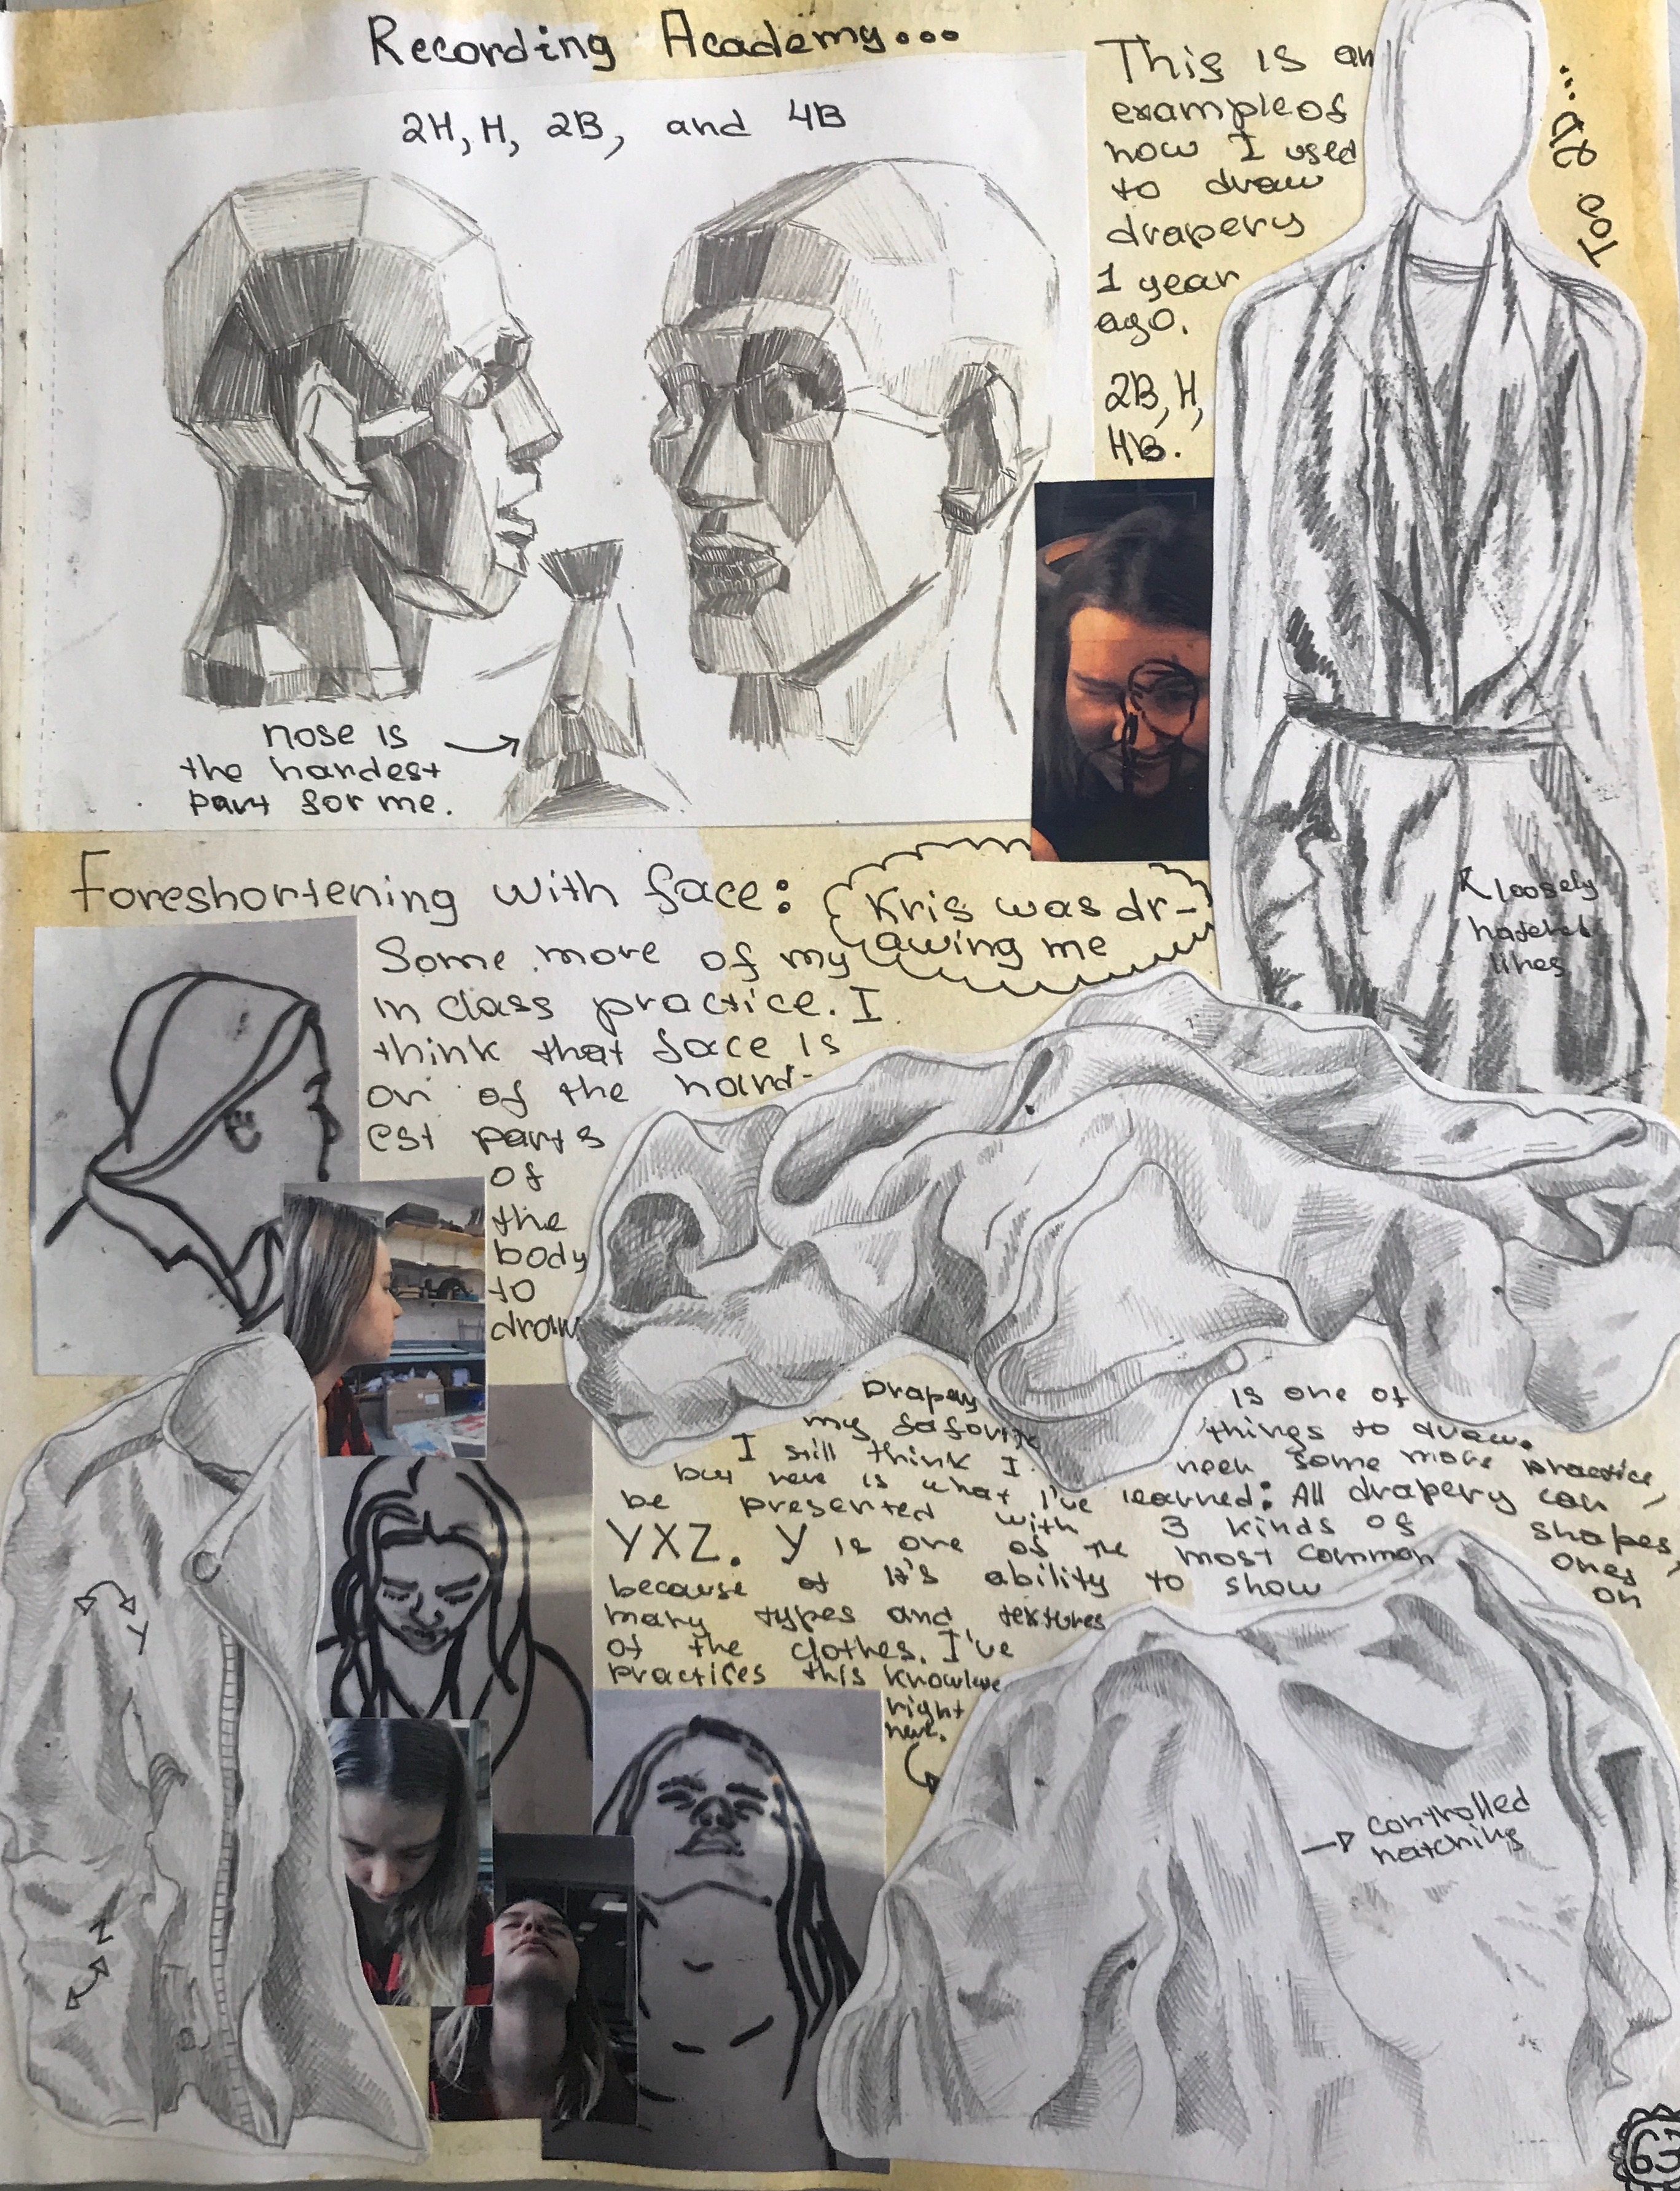 Recording Academy...
2H, H, 2B, and 4B
This is an
example of
how I used
to draw
drapery
1 year
ago.
2B, H,
HB.
Too 2D...
nose is
the hardest
part for me.
loosely
hatched
lines
Foreshortening with face:
Kris was dr-
awing me
Some more of my
in class practice. I
think that face is
on of the hard-
est parts
of
the
body
to
draw
Drapery is one of
my favorite things to draw.
I still think I need some more practice,
but here is what I've learned: All drapery can
be presented with 3 kinds of shapes,
YXZ. Y is one of the most common ones,
because of it's ability to show on
many types and textures
of the clothes. I've
practices this
right
here.
Y
Z
controlled
hatching
63